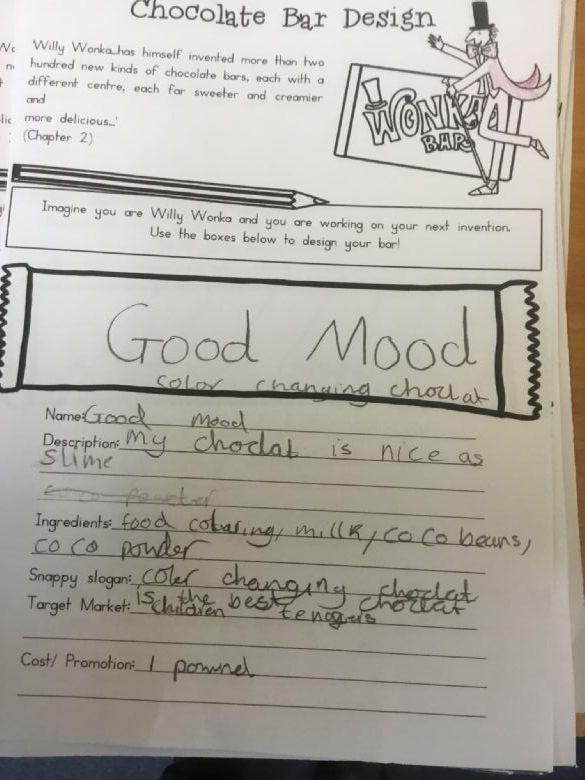 Chocolate Bar Design
Willy Wonka...has himself invented more than two
hundred new kinds of chocolate bars, each with a
different centre, each far sweeter and creamier
and
more delicious...'
(Chapter 2)
WONKA
BAR
Imagine you are Willy Wonka and you are working on your next invention.
Use the boxes below to design your bar!
Good Mood
color changing choclat
Name: Good mood
Description: my choclat is nice as
slime
co co powter
Ingredients: food cobaring, millk, co co beans,
co co powder
Snappy slogan: coler changing choclat
is the best choclat
Target Market: children tenagers
Cost/ Promotion: 1 pownd